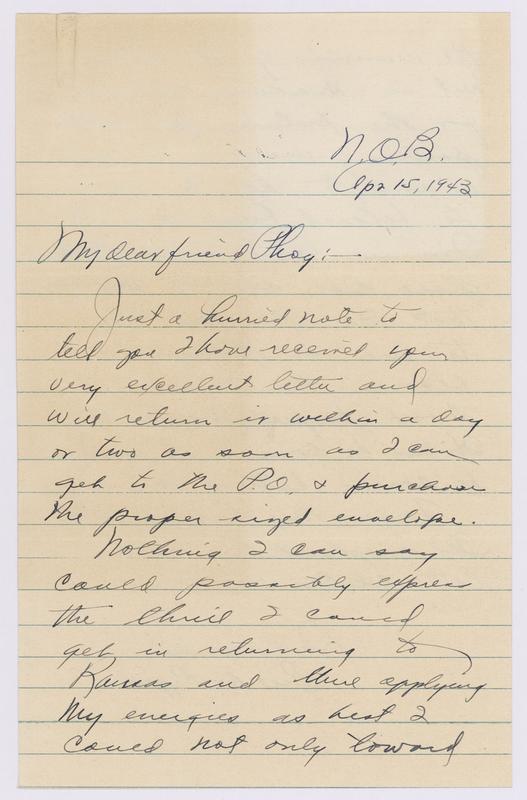 N.O.B.
Apr 15, 1943
My dear friend Phog:—
Just a hurried note to
tell you I have received your
very excellent letter and
will return it within a day
or two as soon as I can
get to the P.O. & purchase
the proper sized envelope.
Nothing I can say
could possibly express
the thrill I could
get in returning to
Kansas and there applying
my energies as best I
could not only toward